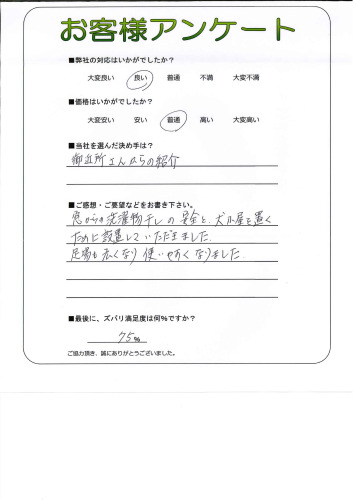 お客様アンケート
■弊社の対応はいかがでしたか？
大変良い 良い 普通 不満 大変不満
■価格はいかがでしたか？
大変安い 安い 普通 高い 大変高い
■当社を選んだ決め手は？
御近所さんからの紹介
■ご感想・ご要望などをお書き下さい。
窓からの洗濯物干しの安全と、犬小屋を置く
ために設置していただきました。
足場も広くなり使いやすくなりました
■最後に、ズバリ満足度は何%ですか？
75%
ご協力頂き、誠にありがとうございました。